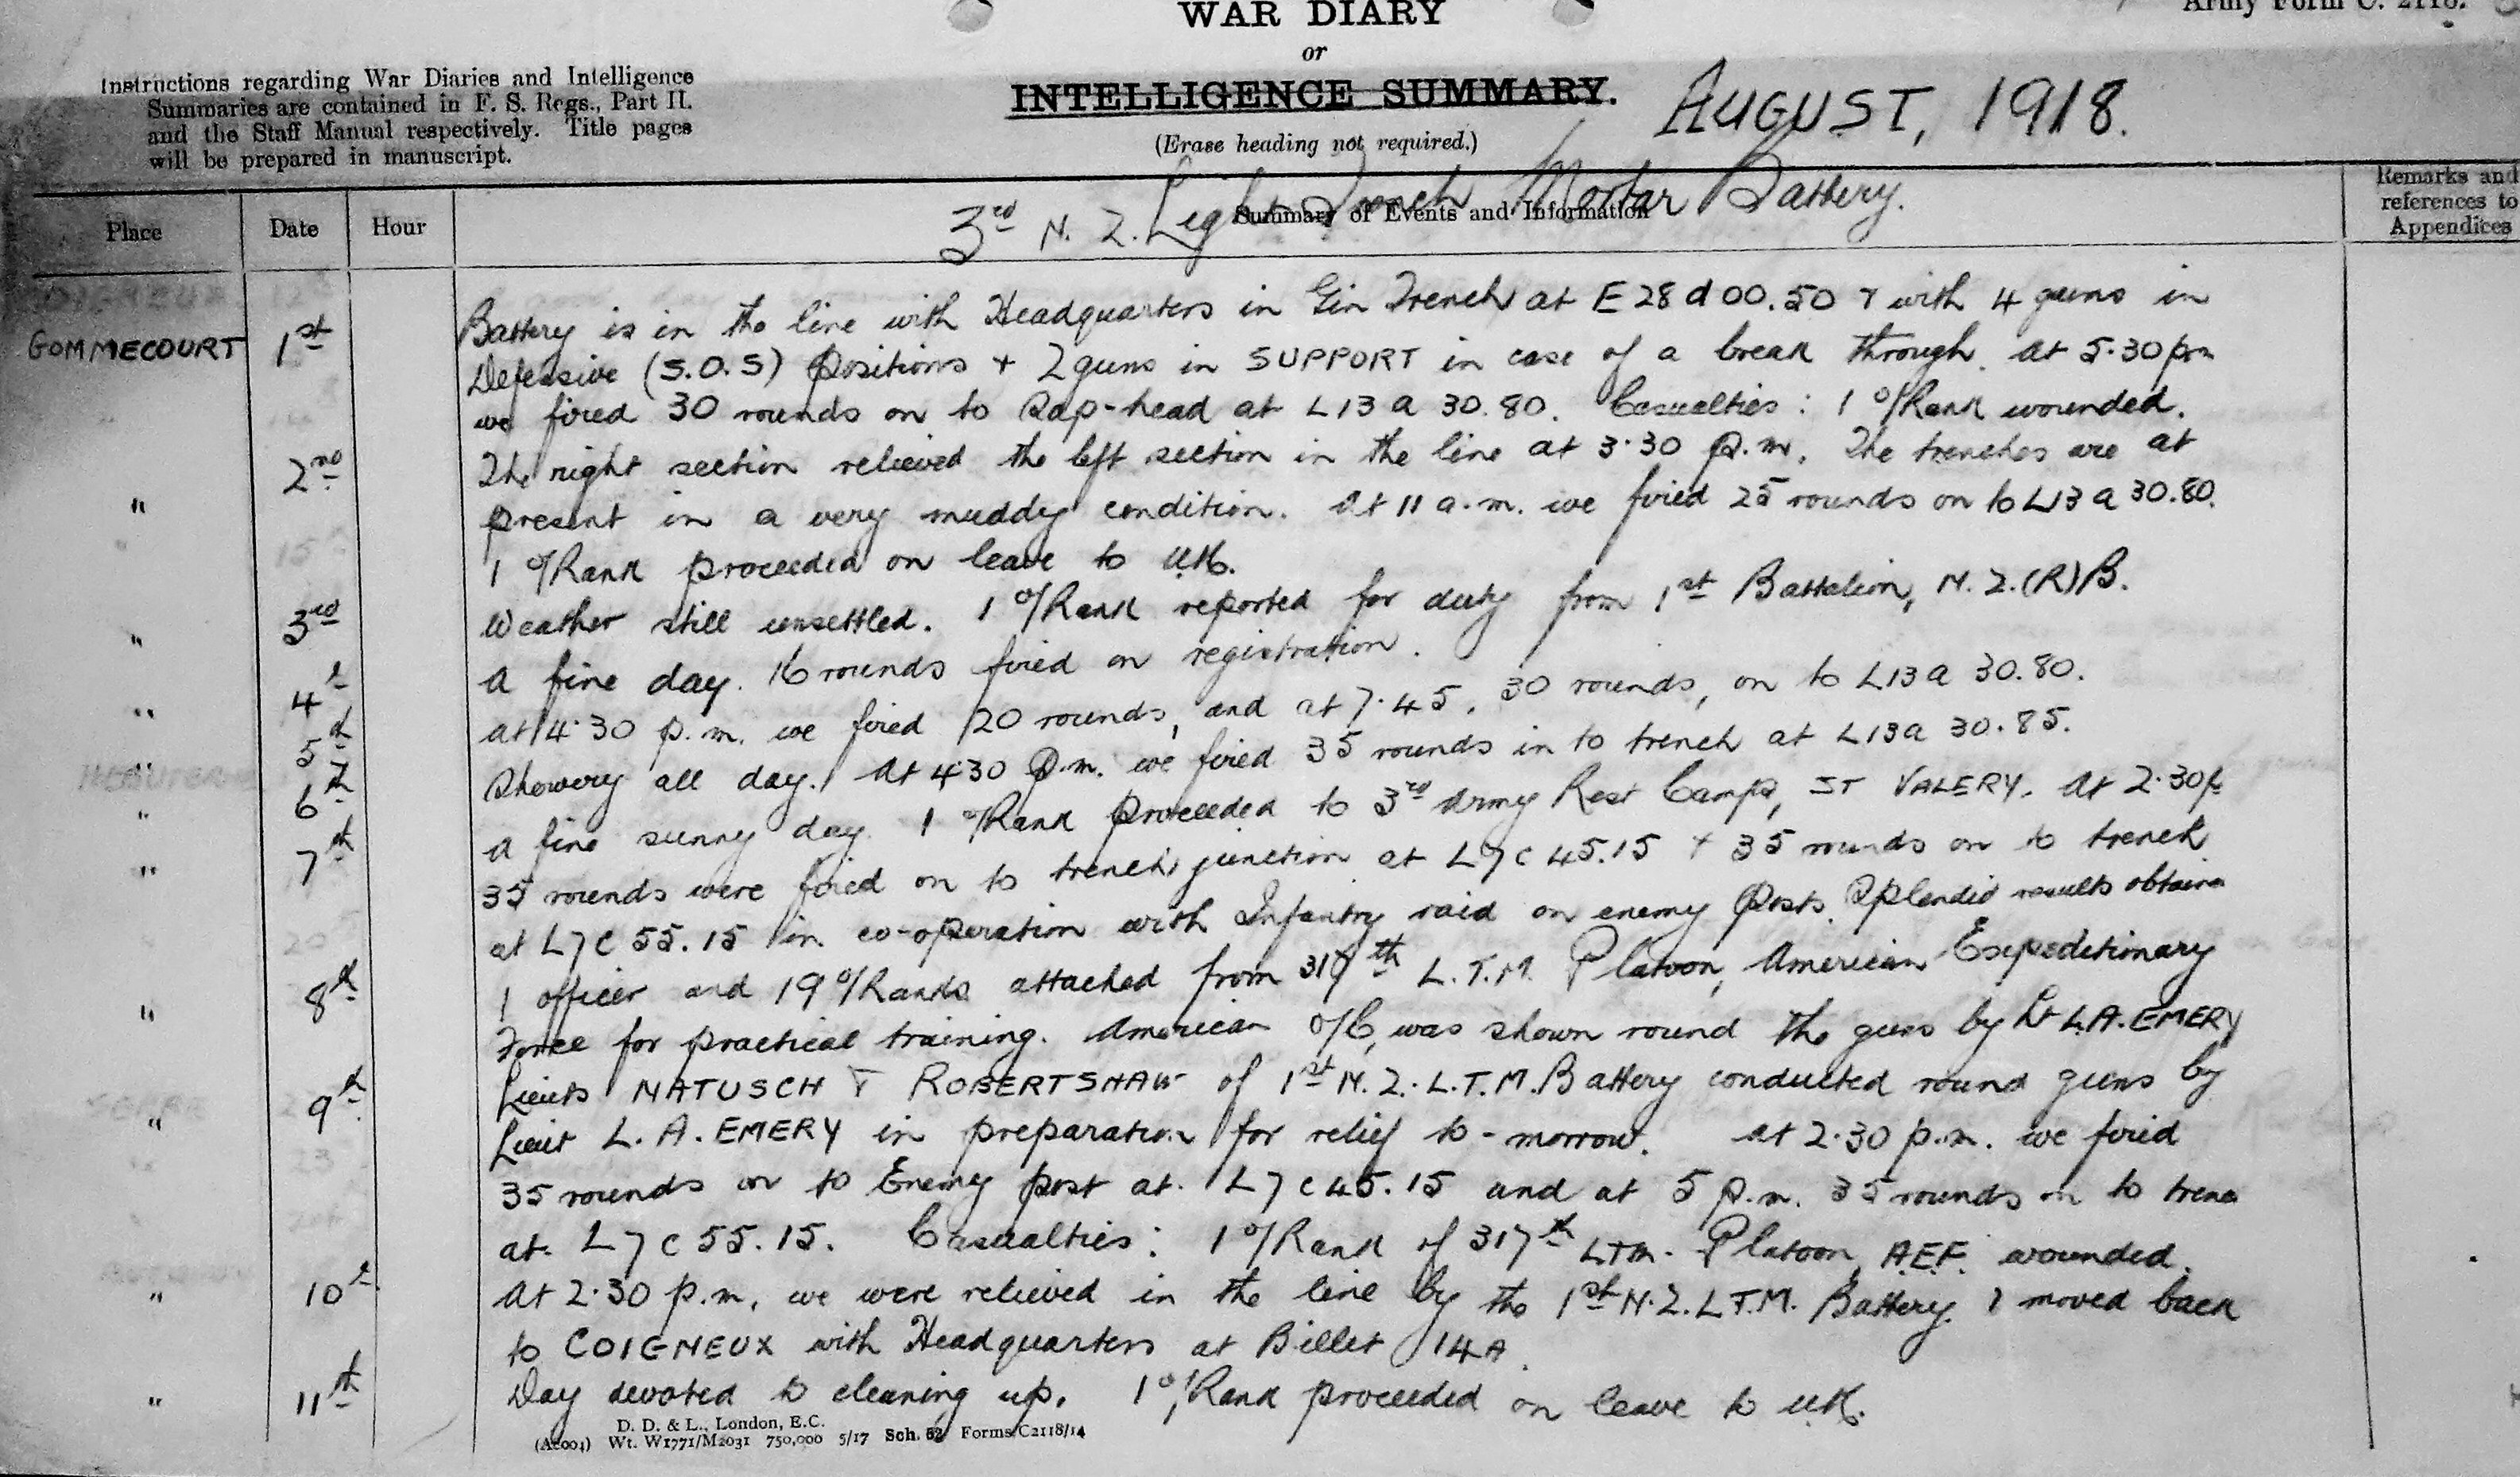 WAR DIARY
Army Form C. 2118.
or
INTELLIGENCE SUMMARY.
(Erase heading not required.)
Instructions regarding War Diaries and Intelligence
Summaries are contained in F. S. Regs., Part II.
and the Staff Manual respectively. Title pages
will be prepared in manuscript.
AUGUST, 1918.
3rd N. Z. Light Trench Mortar Battery.
Place Date Hour Summary of Events and Information
Remarks and
references to
Appendices
GOMMECOURT 1st Battery is in the line with Headquarters in Gin Trench at E 28 d 00.50 & with 4 guns in
Defensive (S.O.S) positions + 2 guns in SUPPORT in case of a break through. At 5.30 pm
we fired 30 rounds on to Sap-head at L13 a 30.80. Casualties: 1 o/Rank wounded.
" 2nd The right section relieved the left section in the line at 3.30 p.m. The trenches are at
present in a very muddy condition. At 11 a.m. we fired 25 rounds on to L13 a 30.80.
1 o/Rank proceeded on leave to U.K.
" 3rd Weather still unsettled. 1 o/Rank reported for duty from 1st Battalion, N.Z.(R)B.
" 4th A fine day. 16 rounds fired on registration.
" 5th At 4.30 p.m. we fired 20 rounds, and at 7.45, 30 rounds, on to L13a 30.80.
" 6th Showery all day. At 4.30 p.m. we fired 35 rounds in to trench at L13a 30.85.
" 7th A fine sunny day. 1 o/Rank proceeded to 3rd Army Rest Camp, ST VALERY. At 2.30 p
35 rounds were fired on to trench junction at L7c 45.15 + 35 rounds on to trench
at L7c 55.15 in co-operation with Infantry raid on enemy posts. Splendid results obtaine
" 8th 1 officer and 19 o/Ranks attached from 317th L.T.M. Platoon, American Expeditionary
Force for practical training. American o/C, was shown round the guns by Lt L.A. EMERY
" 9th Lieuts NATUSCH & ROBERTSHAW of 1st N.Z. L.T.M. Battery conducted round guns by
Lieut L. A. EMERY in preparation for relief to-morrow. At 2.30 p.m. we fired
35 rounds on to Enemy post at L7c45.15 and at 5 p.m. 35 rounds on to tren
at L7c 55.15. Casualties: 1 o/Rank of 317th LTM. Platoon, A.E.F. wounded.
" 10th At 2.30 p.m, we were relieved in the line by the 1st N.Z. L.T.M. Battery & moved back
to COIGNEUX with Headquarters at Billet 14A.
" 11th Day devoted to cleaning up. 1 o/Rank proceeded on leave to U.K.
D. D. & L., London, E.C.
(A2004) Wt. W1771/M2031 750,000 5/17 Sch. 52 Forms/C2118/14